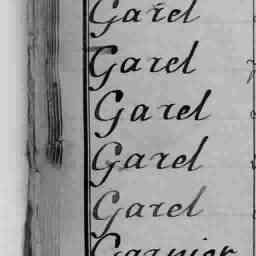 Garel
Garel
Garel
Garel
Garel
Garnier